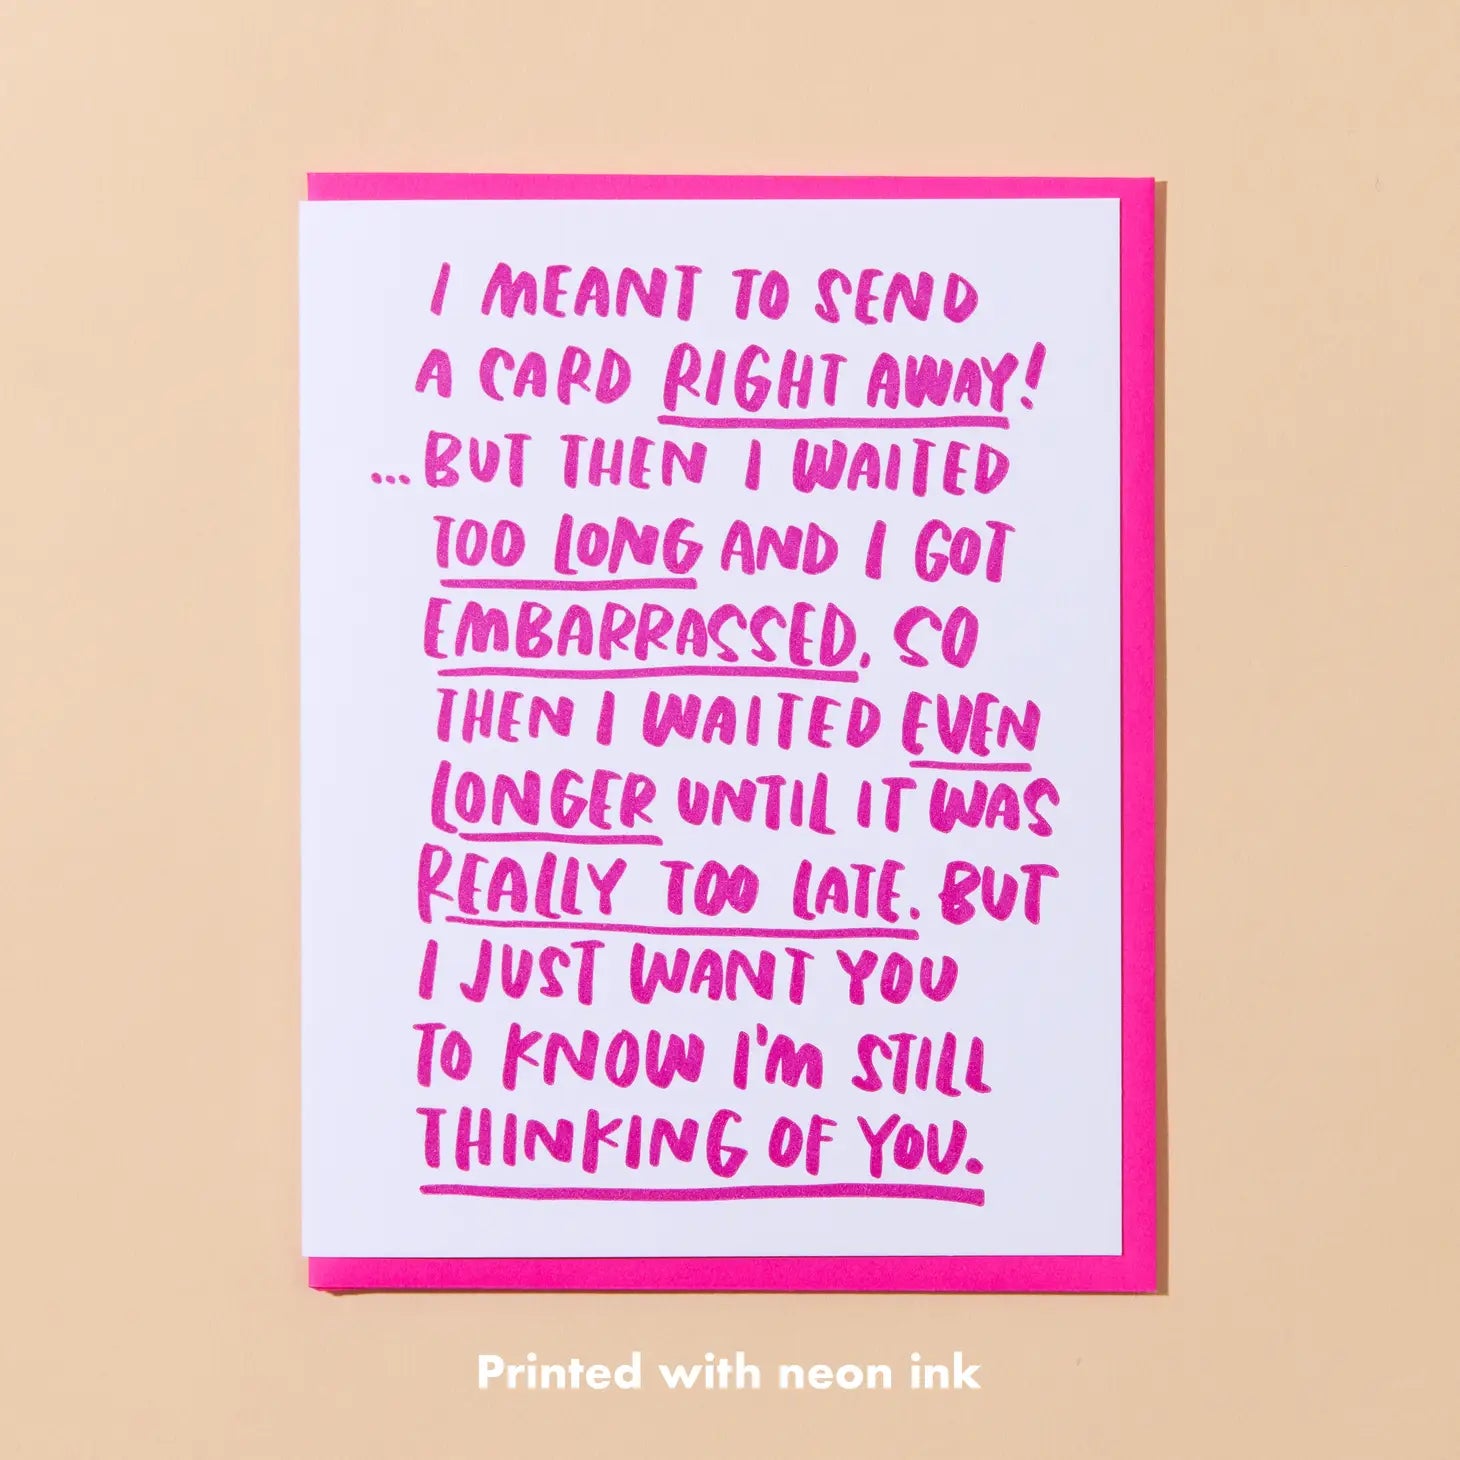 I MEANT TO SEND
A CARD RIGHT AWAY!
...BUT THEN I WAITED
TOO LONG AND I GOT
EMBARRASSED, SO
THEN I WAITED EVEN
LONGER UNTIL IT WAS
REALLY TOO LATE. BUT
I JUST WANT YOU
TO KNOW I'M STILL
THINKING OF YOU.
Printed with neon ink